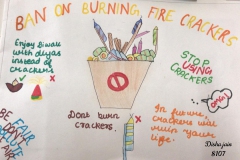 BAN ON BURNING FIRE CRACKERS
Enjoy Diwali
with diyas
instead of
crackers
STOP
USING
CRACKERS
OMG!
Dont burn
crackers.
In future,
crackers will
ruin your
life.
BE
Disha jain
8107